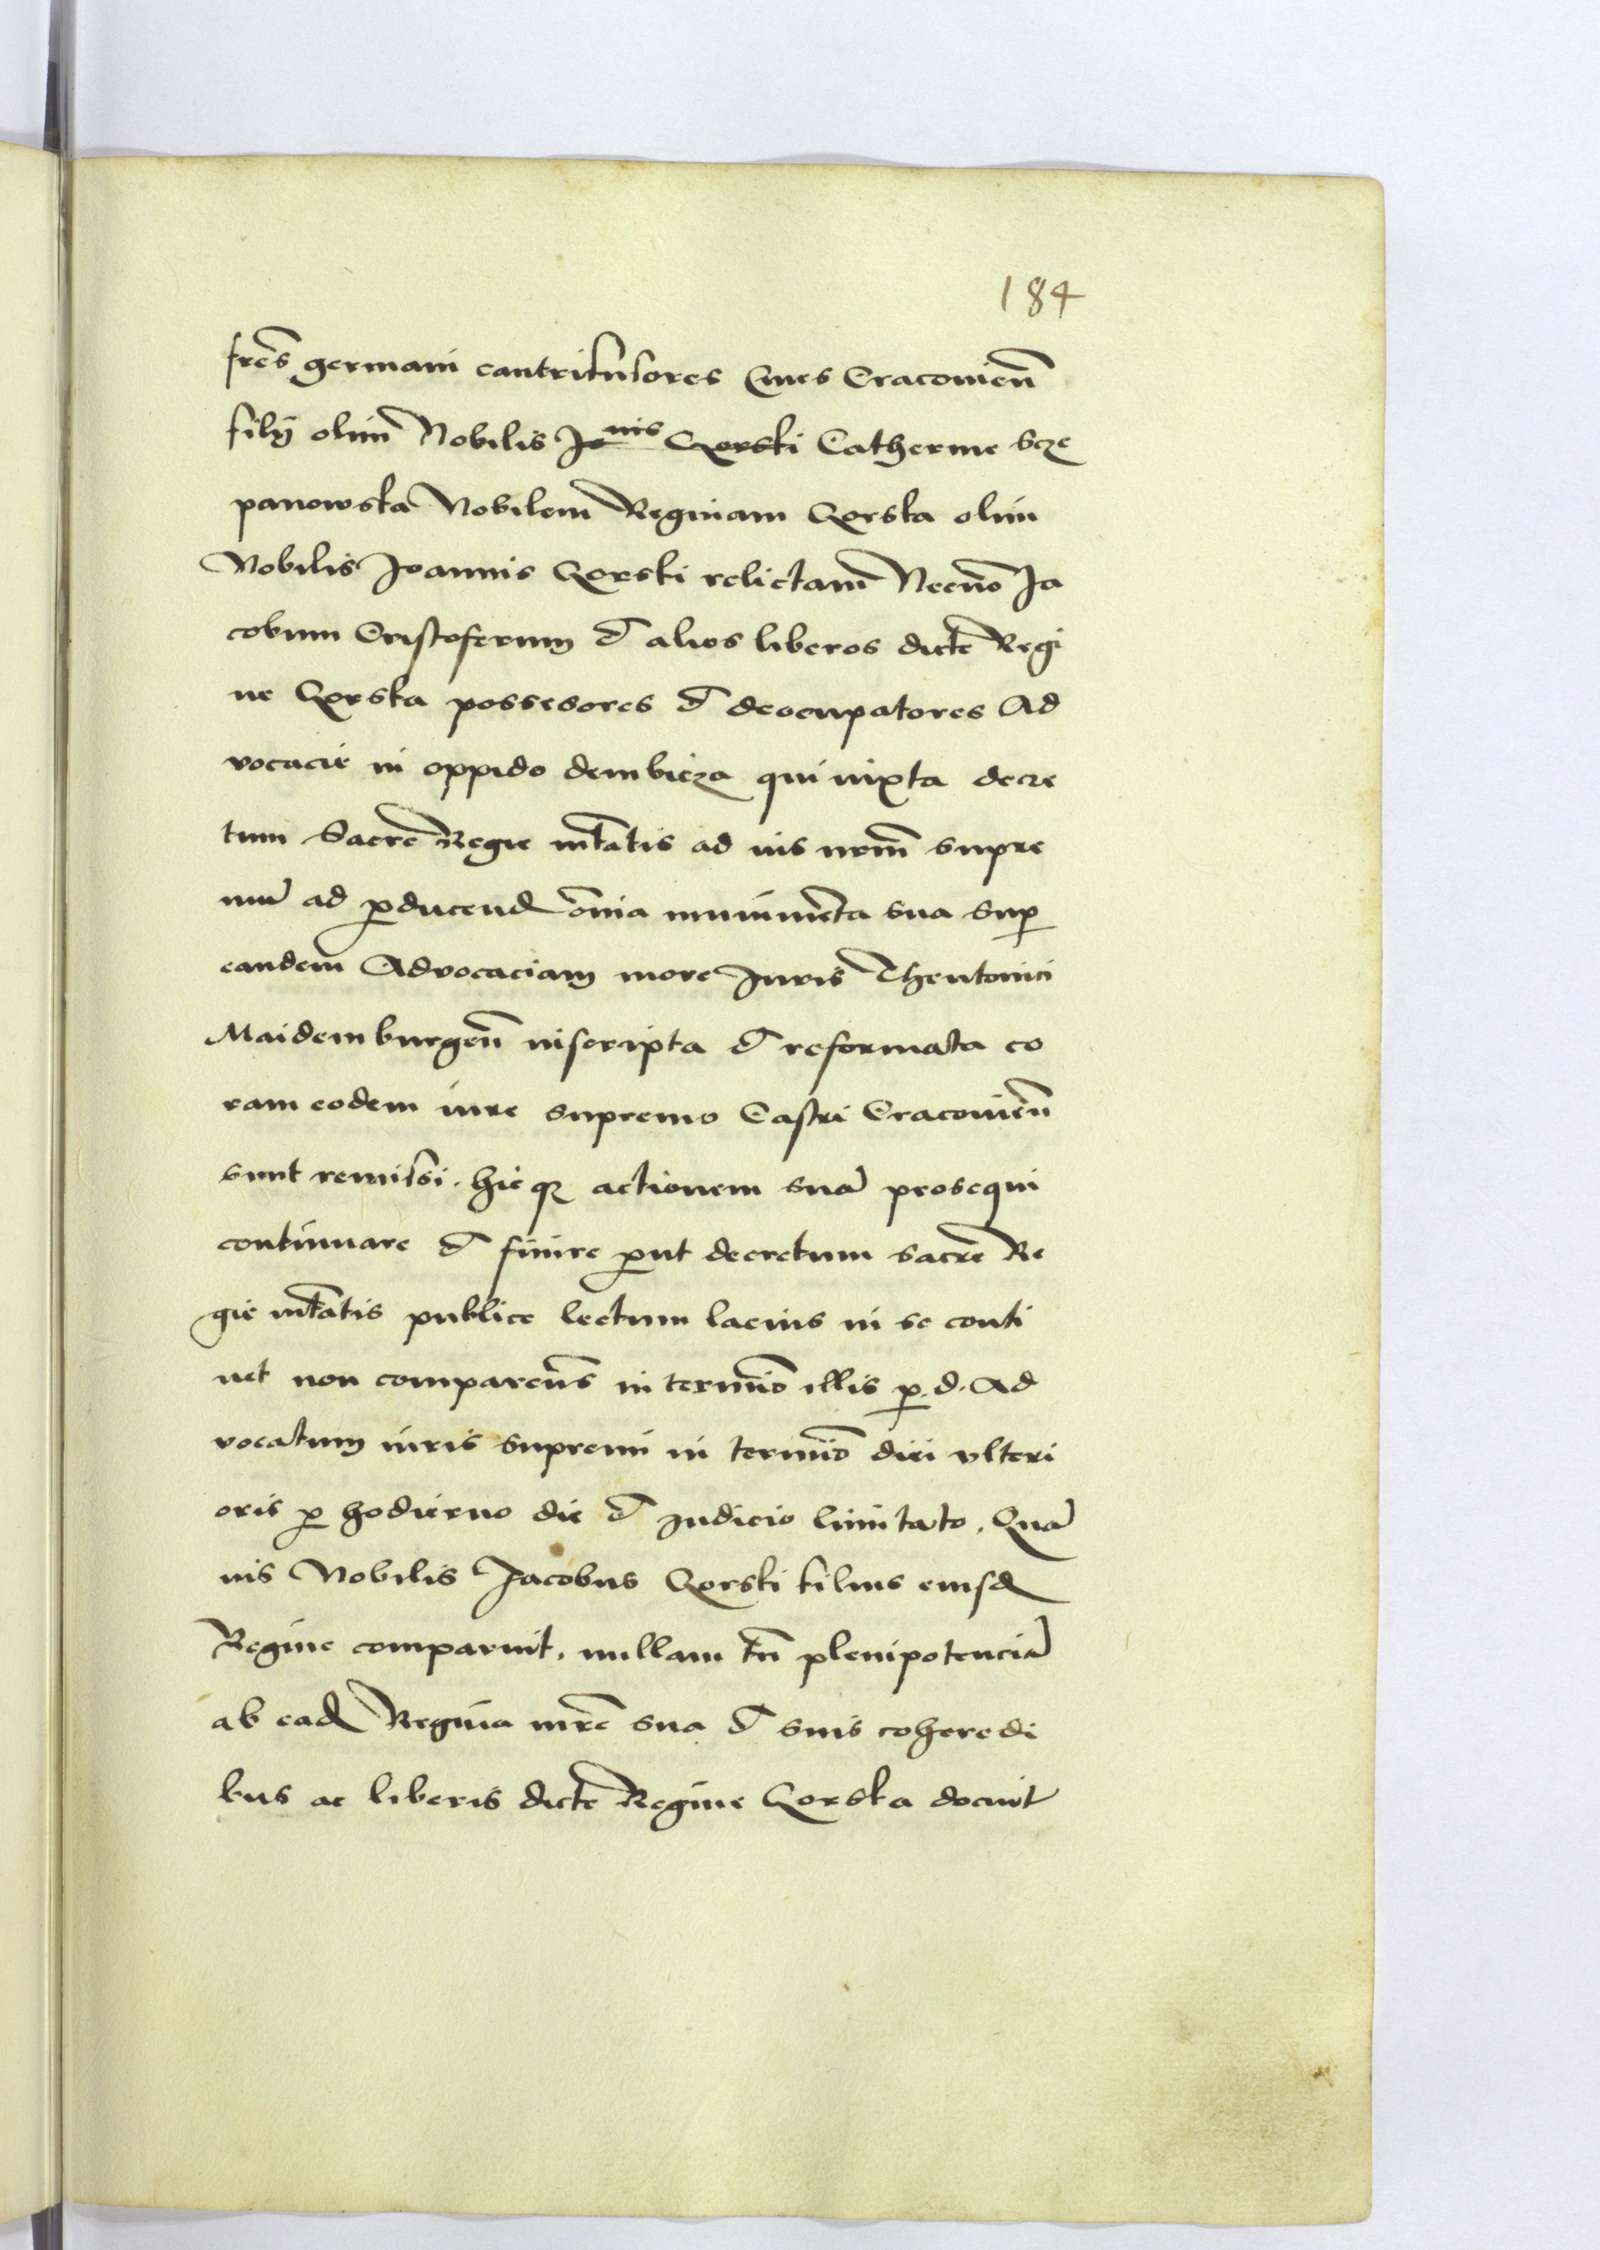 184
fres germani cantrifusores Cives Cracovien
filij olim Nobilis Jo nis Gorski Catherine Scze
panowska Nobilem Reginam Gorska olim
Nobilis Joannis Gorski relictam Necno Ja
cobum Cristoferum et alios liberos dicte Regi
ne Gorska possesores et deocupatores Ad
vocacie in oppido dembicza qui iuxta decre
tum Sacre Regie mtatis ad ius nrm supre
mu ad perducend omnia munimenta sua super
eandem Advocaciam more Juris Theutonici
Maidemburgen inscripta et reformata co
ram eodem iure supremo Castri Cracovien
sunt remissi. hicque actionem sua prosequi
continuare et finire prout decretum sacre Re
gie mtatis publice lectum lacius in se conti
net non comparens in termino illis per d. Ad
vocatum iuris supremi in termio diei ulteri
oris pro hodierno die et judicio limitato. Qua
vis Nobilis Jacobus Gorski filius eiusd
Regine comparuit. nullam tn plenipotencia
ab ead Regina mre sua et suis coheredi
bus ac liberis dicte Regine Gorska docuit